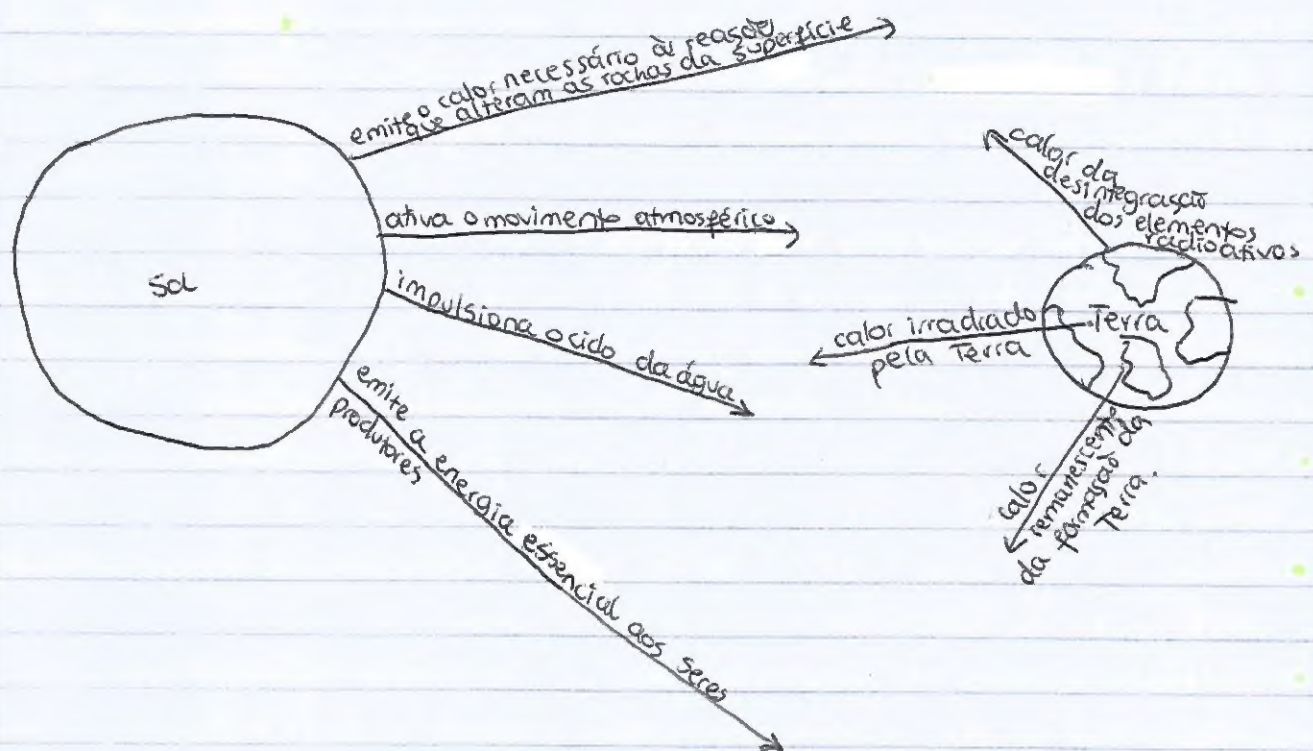 emite o calor necessário às reasõe
que alteram as rochas da superfície
ativa o movimento atmosférico
Sol
impulsiona o ciclo da água
emite a energia essencial aos seres
produtores
calor da
desintegrasão
dos elementos
radioativos
calor irradrado
pela Terra
Terra
calor
remanescente
da formasão da
Terra.